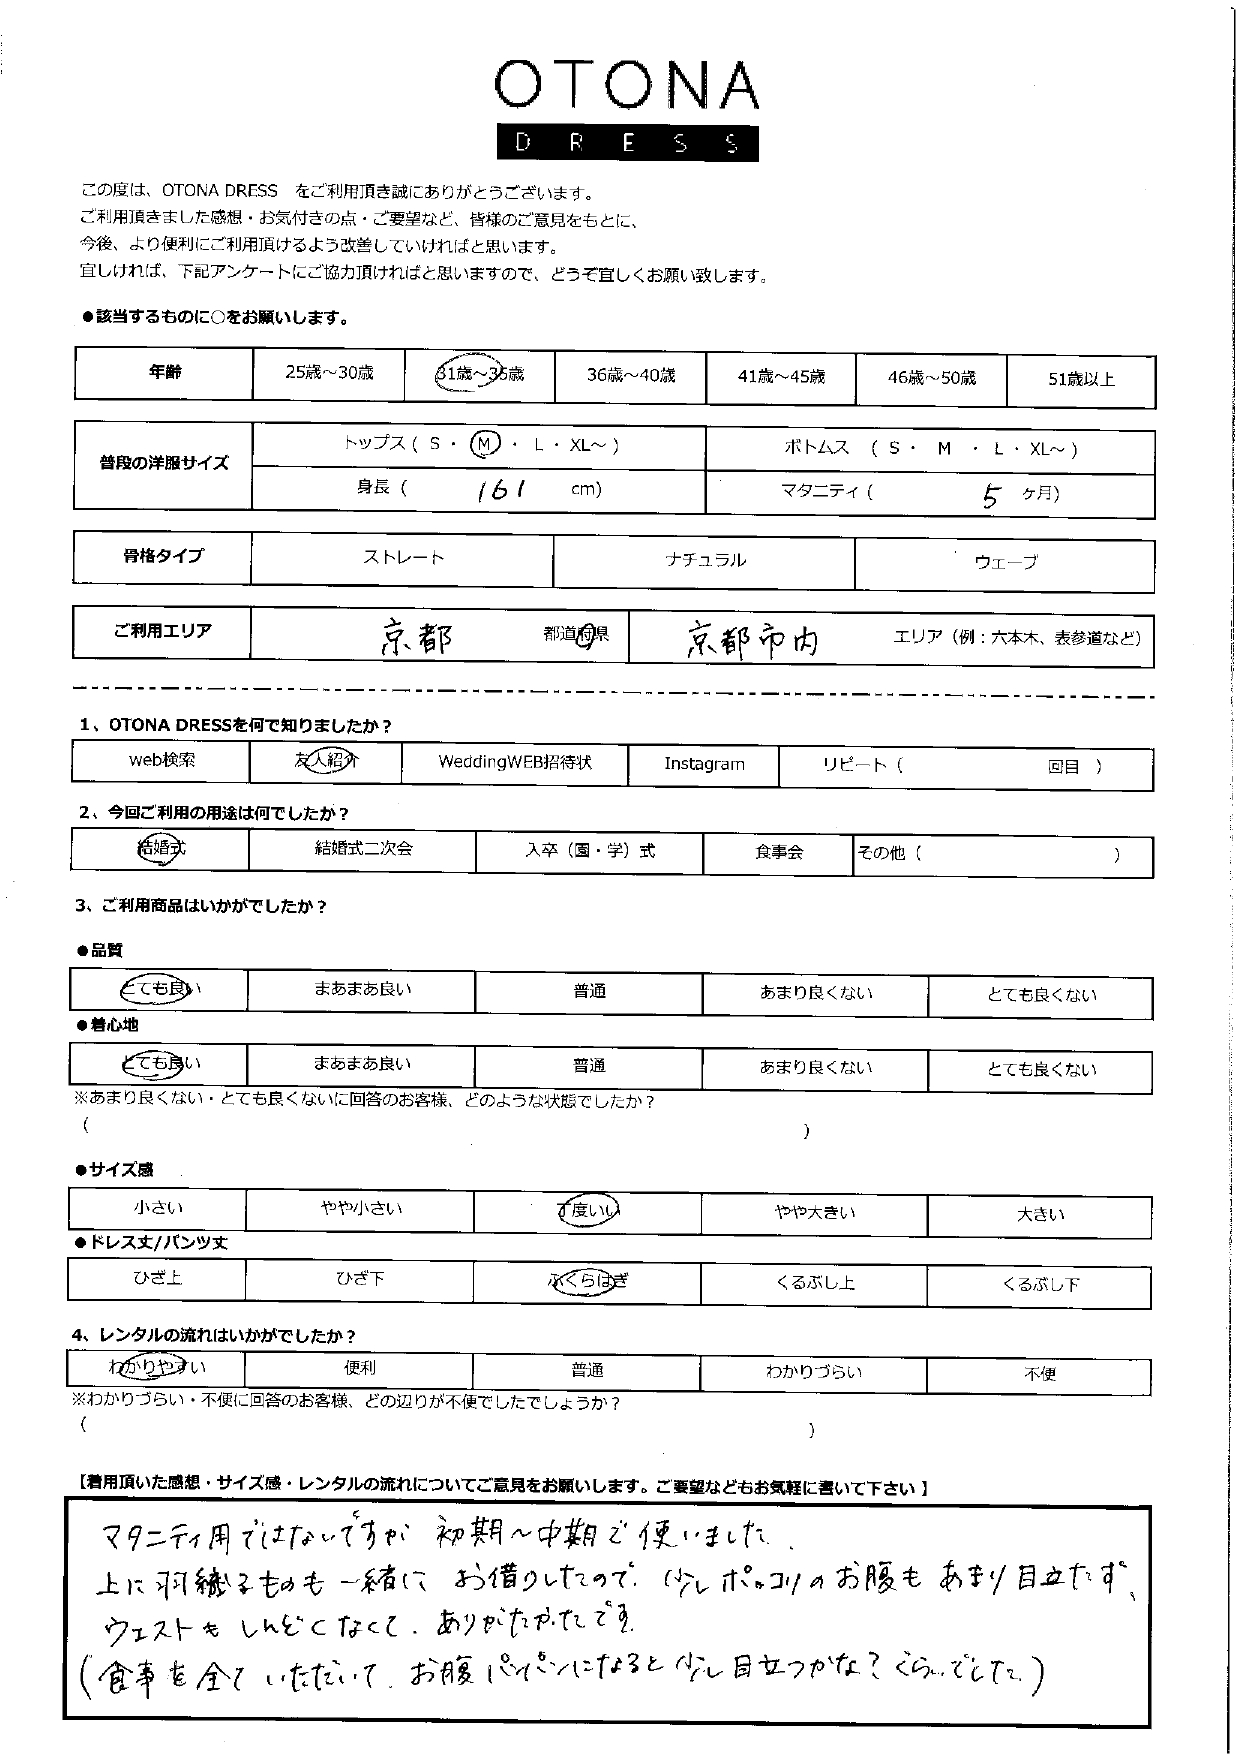 OTONA
DRESS
この度は、OTONA DRESS　をご利用頂き誠にありがとうございます。
ご利用頂きました感想・お気付きの点・ご要望など、皆様のご意見をもとに、
今後、より便利にご利用頂けるよう改善していければと思います。
宜しければ、下記アンケートにご協力頂ければと思いますので、どうぞ宜しくお願い致します。
●該当するものに○をお願いします。
年齢 25歳～30歳 31歳～35歳 36歳～40歳 41歳～45歳 46歳～50歳 51歳以上
普段の洋服サイズ トップス ( S ・ M ・ L ・ XL～ ) ボトムス ( S ・ M ・ L ・ XL～ )
身長 ( 161 cm) マタニティ ( 5 ヶ月)
骨格タイプ ストレート ナチュラル ウェーブ
ご利用エリア 京都 都道府県 京都市内 エリア（例：六本木、表参道など）
1、OTONA DRESSを何で知りましたか？
web検索 友人紹介 WeddingWEB招待状 Instagram リピート ( 回目 )
2、今回ご利用の用途は何でしたか？
結婚式 結婚式二次会 入卒（園・学）式 食事会 その他 ( )
3、ご利用商品はいかがでしたか？
●品質
とても良い まあまあ良い 普通 あまり良くない とても良くない
●着心地
とても良い まあまあ良い 普通 あまり良くない とても良くない
※あまり良くない・とても良くないに回答のお客様、どのような状態でしたか？
( )
●サイズ感
小さい やや小さい 丁度いい やや大きい 大きい
●ドレス丈/パンツ丈
ひざ上 ひざ下 ふくらはぎ くるぶし上 くるぶし下
4、レンタルの流れはいかがでしたか？
わかりやすい 便利 普通 わかりづらい 不便
※わかりづらい・不便に回答のお客様、どの辺りが不便でしたでしょうか？
( )
【着用頂いた感想・サイズ感・レンタルの流れについてご意見をお願いします。ご要望などもお気軽に書いて下さい】
マタニティ用ではないですが 初期～中期で使いました.
上に羽織るものも一緒に お借りしたので. 少しポッコリのお腹も あまり目立たず、
ウェストも しんどくなくて. ありがたかったです.
(食事を全て いただいて. お腹パンパンになると少し目立つかな？くらいでした.)